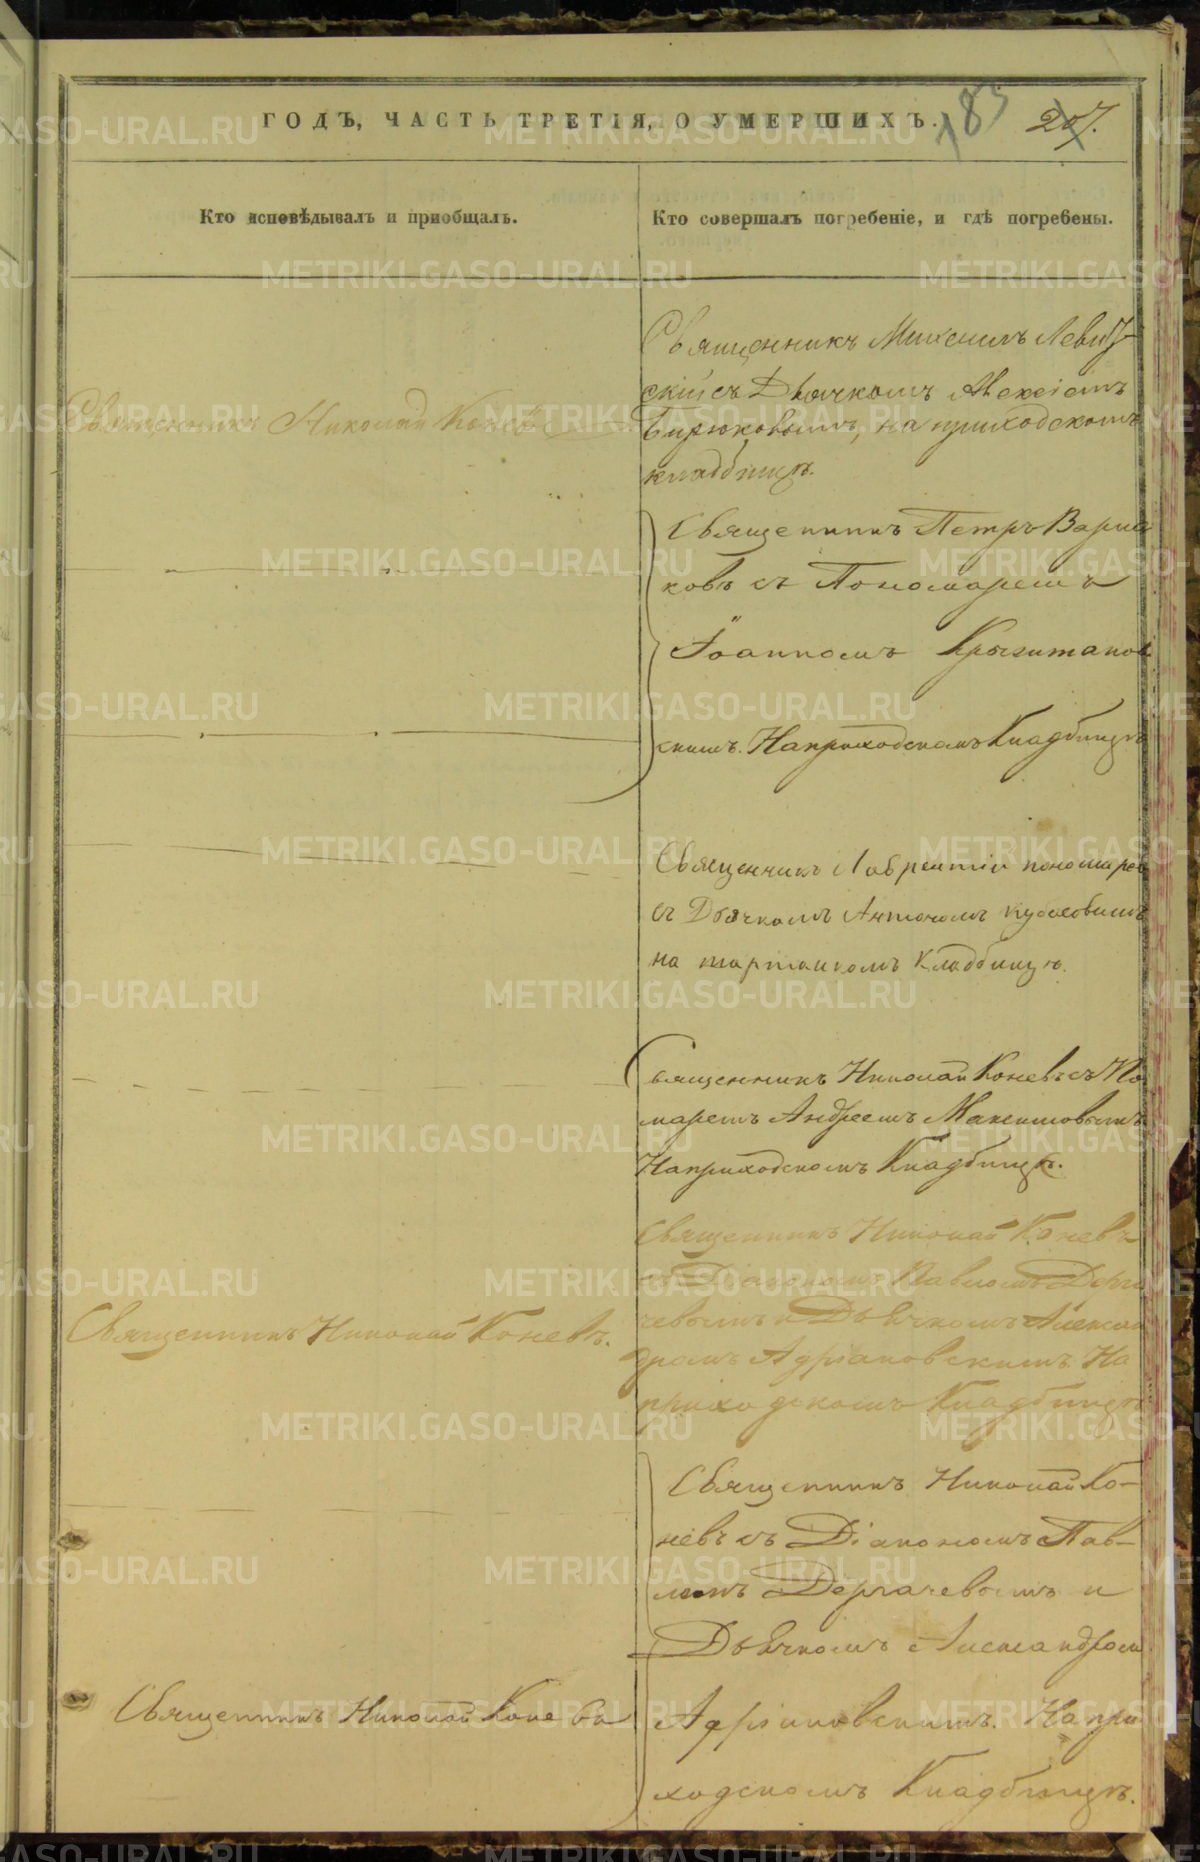 ГОДЪ, ЧАСТЬ ТРЕТІЯ, О УМЕРШИХЪ.
183
207.
Кто исповѣдывалъ и пріобщалъ.
Кто совершалъ погребеніе, и гдѣ погребены.
Священникъ Михаилъ Левиц-
кій съ Дьячкомъ Алексіемъ
Бирюковымъ, на приходскомъ
кладбищѣ.
Священникъ Николай Коневъ
Священникъ Петръ
ковъ съ Пономаремъ
Іоанномъ
скимъ. На приходскомъ Кладбищѣ
Священникъ Лаврентій Пономарев
съ Дьячкомъ Антономъ
на кладбищѣ.
Священникъ Николай Коневъ съ По
маремъ Андреемъ Максимовымъ
На приходскомъ Кладбищѣ.
Священникъ Николай Коневъ
съ Діакономъ Павломъ Дерга
чевымъ и Дьячкомъ Алексан
дромъ Адріановскимъ. На
приходскомъ Кладбищѣ
Священникъ Николай Коневъ.
Священникъ Николай Ко-
невъ съ Діакономъ Пав-
ломъ Дергачевымъ и
Дьячкомъ Александром
Адріановскимъ. На при
ходскомъ Кладбищѣ.
Священникъ Николай Конева
METRIKI.GASO-URAL.RU